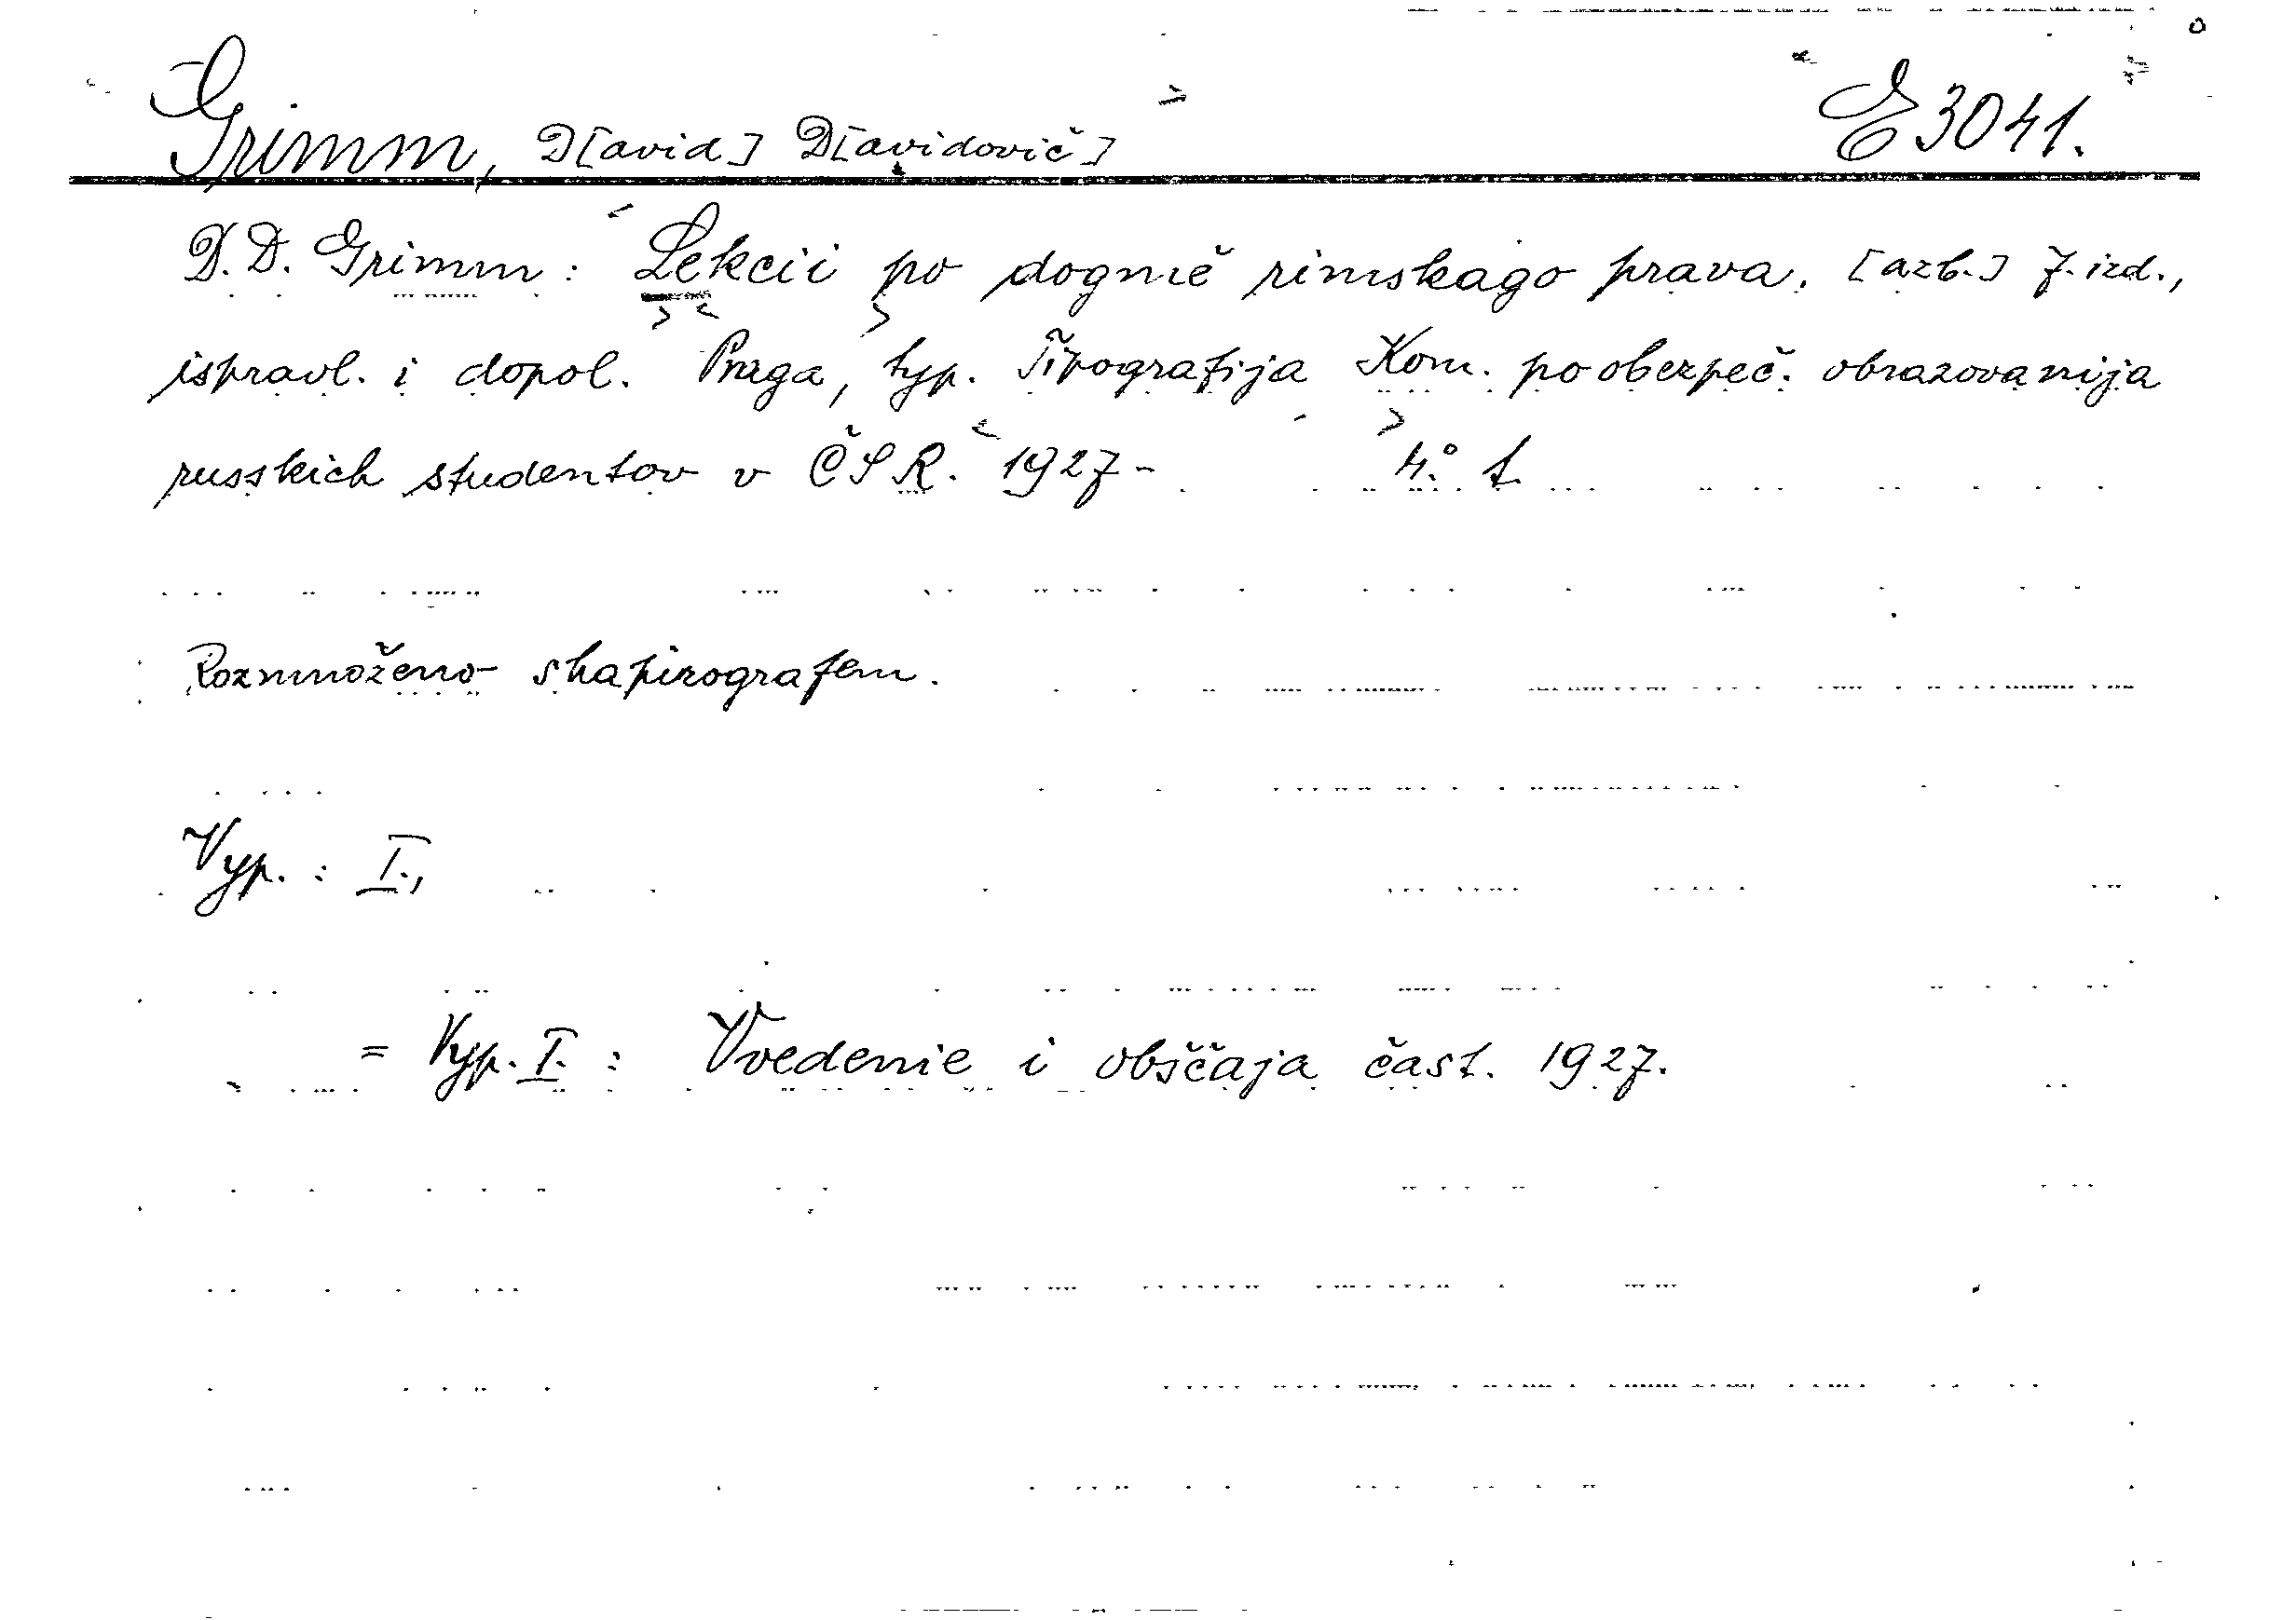 Grimm, D[avid] D[avidovič] E 3041.
D. D. Grimm: Lekcii po dogmě rimskago prava. [azb.] 7. izd.,
ispravl. i dopol. Praga, typ. Tipografija Kom. po obezpeč. obrazovanija
russkich studentov v ČSR. 1927- 4.° t.
Rozmnoženo shapirografem.
Vyp. : I.,
= Vyp. I. : Vvedenie i obščaja čast. 1927.